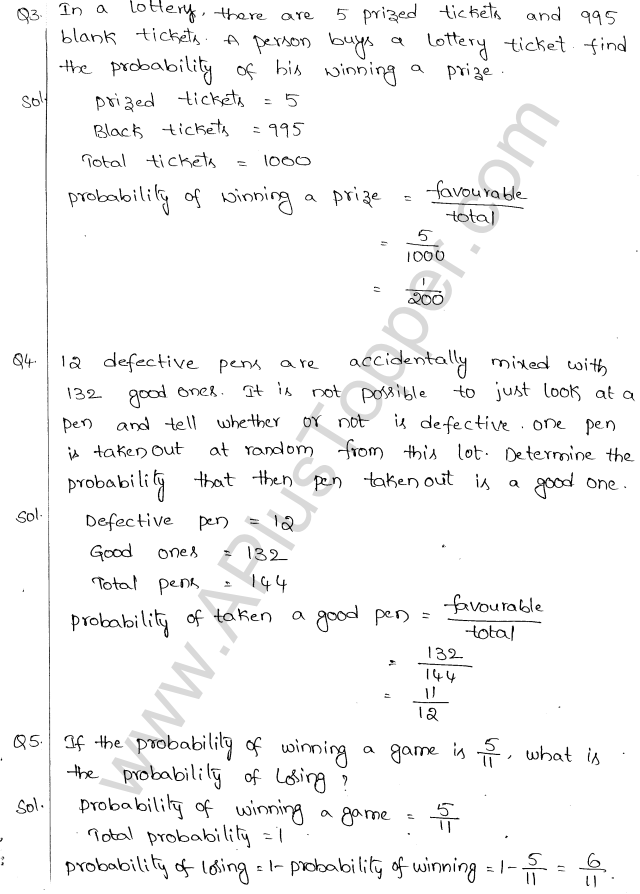 Q3. In a lottery, there are 5 prized tickets and 995
blank tickets. A person buys a lottery ticket. find
the probability of his winning a prize.
Sol. prized tickets = 5
Black tickets = 995
Total tickets = 1000
probability of winning a prize = favourable/total
= 5/1000
= 1/200
Q4. 12 defective pens are accidentally mixed with
132 good ones. It is not possible to just look at a
pen and tell whether or not is defective. one pen
is taken out at random from this lot. Determine the
probability that then pen taken out is a good one.
Sol. Defective pen = 12
Good ones = 132
Total pens = 144
probability of taken a good pen = favourable/total
= 132/144
= 11/12
Q5. If the probability of winning a game is 5/11, what is
the probability of losing?
Sol. probability of winning a game = 5/11
Total probability = 1
probability of losing = 1 - probability of winning = 1 - 5/11 = 6/11.
www.APlusTopper.com